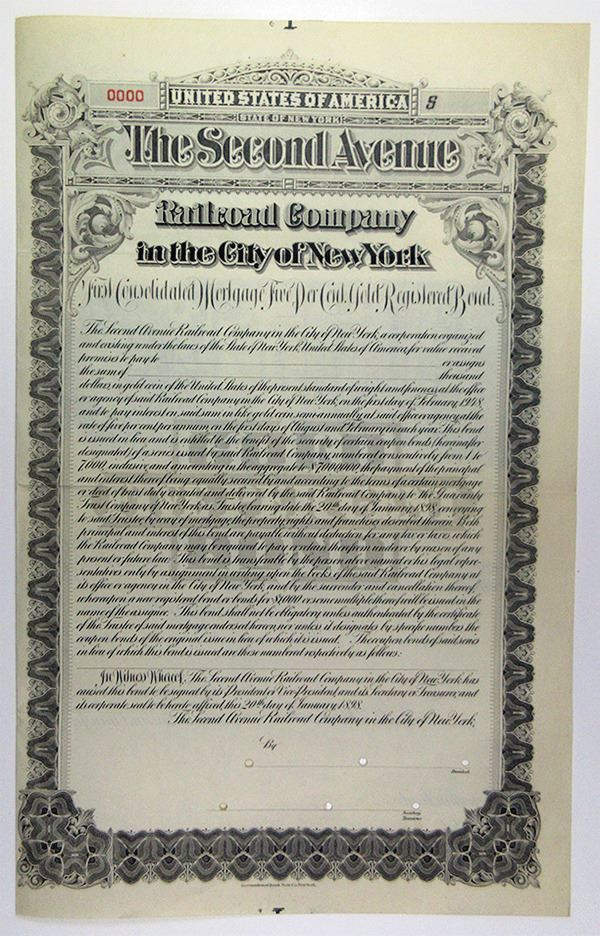 0000
UNITED STATES OF AMERICA
$
STATE OF NEW YORK
The Second Avenue
Railroad Company
in the City of New York
First Consolidated Mortgage Five Per Cent. Gold Registered Bond.
The Second Avenue Railroad Company in the City of New York, a corporation organized
and existing under the laws of the State of New York, United States of America, for value received
promises to pay to or assigns
the sum of thousand
dollars, in gold coin of the United States of the present standard of weight and fineness, at the office
or agency of said Railroad Company, in the City of New York, on the first day of February, 1948,
and to pay interest on said sum in like gold coin semi-annually, at said office or agency, at the
rate of five per cent per annum, on the first days of August and February, in each year. This bond
is issued in lieu and is entitled to the benefit of the security of certain coupon bonds (hereinafter
designated) of a series issued by said Railroad Company, numbered consecutively from 1 to
7,000, inclusive, and amounting in the aggregate to $7,000,000, the payment of the principal
and interest thereof being equally secured by and according to the terms of a certain mortgage
or deed of trust duly executed and delivered by the said Railroad Company to the Guaranty
Trust Company of New York, as Trustee, bearing date the 20th day of January, 1898, conveying
to said Trustee by way of mortgage the property, rights and franchises described therein. Both
principal and interest of this bond are payable without deduction for any tax or taxes which
the Railroad Company may be required to pay or retain therefrom under or by reason of any
present or future law. This bond is transferable by the person above named or his legal repre-
sentatives only by assignment in writing upon the books of the said Railroad Company at
its office or agency in the City of New York, and by the surrender and cancellation thereof,
whereupon a new registered bond or bonds for $1,000 or some multiple thereof will be issued in the
name of the assignee. This bond shall not be obligatory unless authenticated by the certificate
of the Trustee of said mortgage endorsed hereon, nor unless it designates by specific numbers the
coupon bonds of the original issue in lieu of which it is issued. The coupon bonds of said series
in lieu of which this bond is issued are those numbered respectively as follows:
In Witness Whereof, The Second Avenue Railroad Company in the City of New York has
caused this bond to be signed by its President or Vice-President, and its Secretary or Treasurer, and
its corporate seal to be hereto affixed, this 20th day of January, 1898.
The Second Avenue Railroad Company in the City of New York,
By
President.
Secretary.
Treasurer.